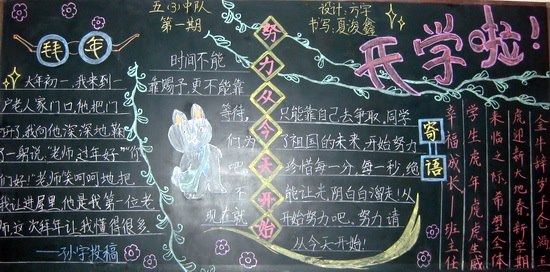 五(3)中队
第一期
设计:方宇
书写:夏凌鑫
开学啦!
拜年
大年初一,我来到一
户老人家门口,他把门
开了,我向他深深地鞠
了一躬说:“老师过年好”“你
们好!”老师笑呵呵地把
我让进屋里,他是我第一位老
师,这次拜年让我懂得很多。
——孙宇投稿
努力从今天开始
时间不能
等待,
靠赐予更不能靠
只能靠自己去争取,同学
们为了祖国的未来,开始努力
吧!珍惜每一分,每一秒,绝
不能让光阴白白溜走!从
现在就开始努力吧、努力请
从今天开始!
寄语
金牛辞岁千仓满,玉
虎迎新天地春,新学期
来临之际,希望全体
学生虎年虎虎生威
幸福成长!——班主任